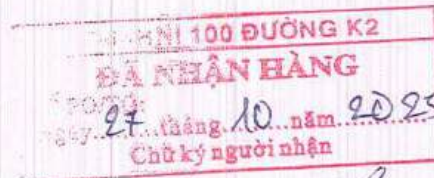 HNI 100 ĐƯỜNG K2
ĐÃ NHẬN HÀNG
27 tháng 10 năm 2025
Chữ ký người nhận